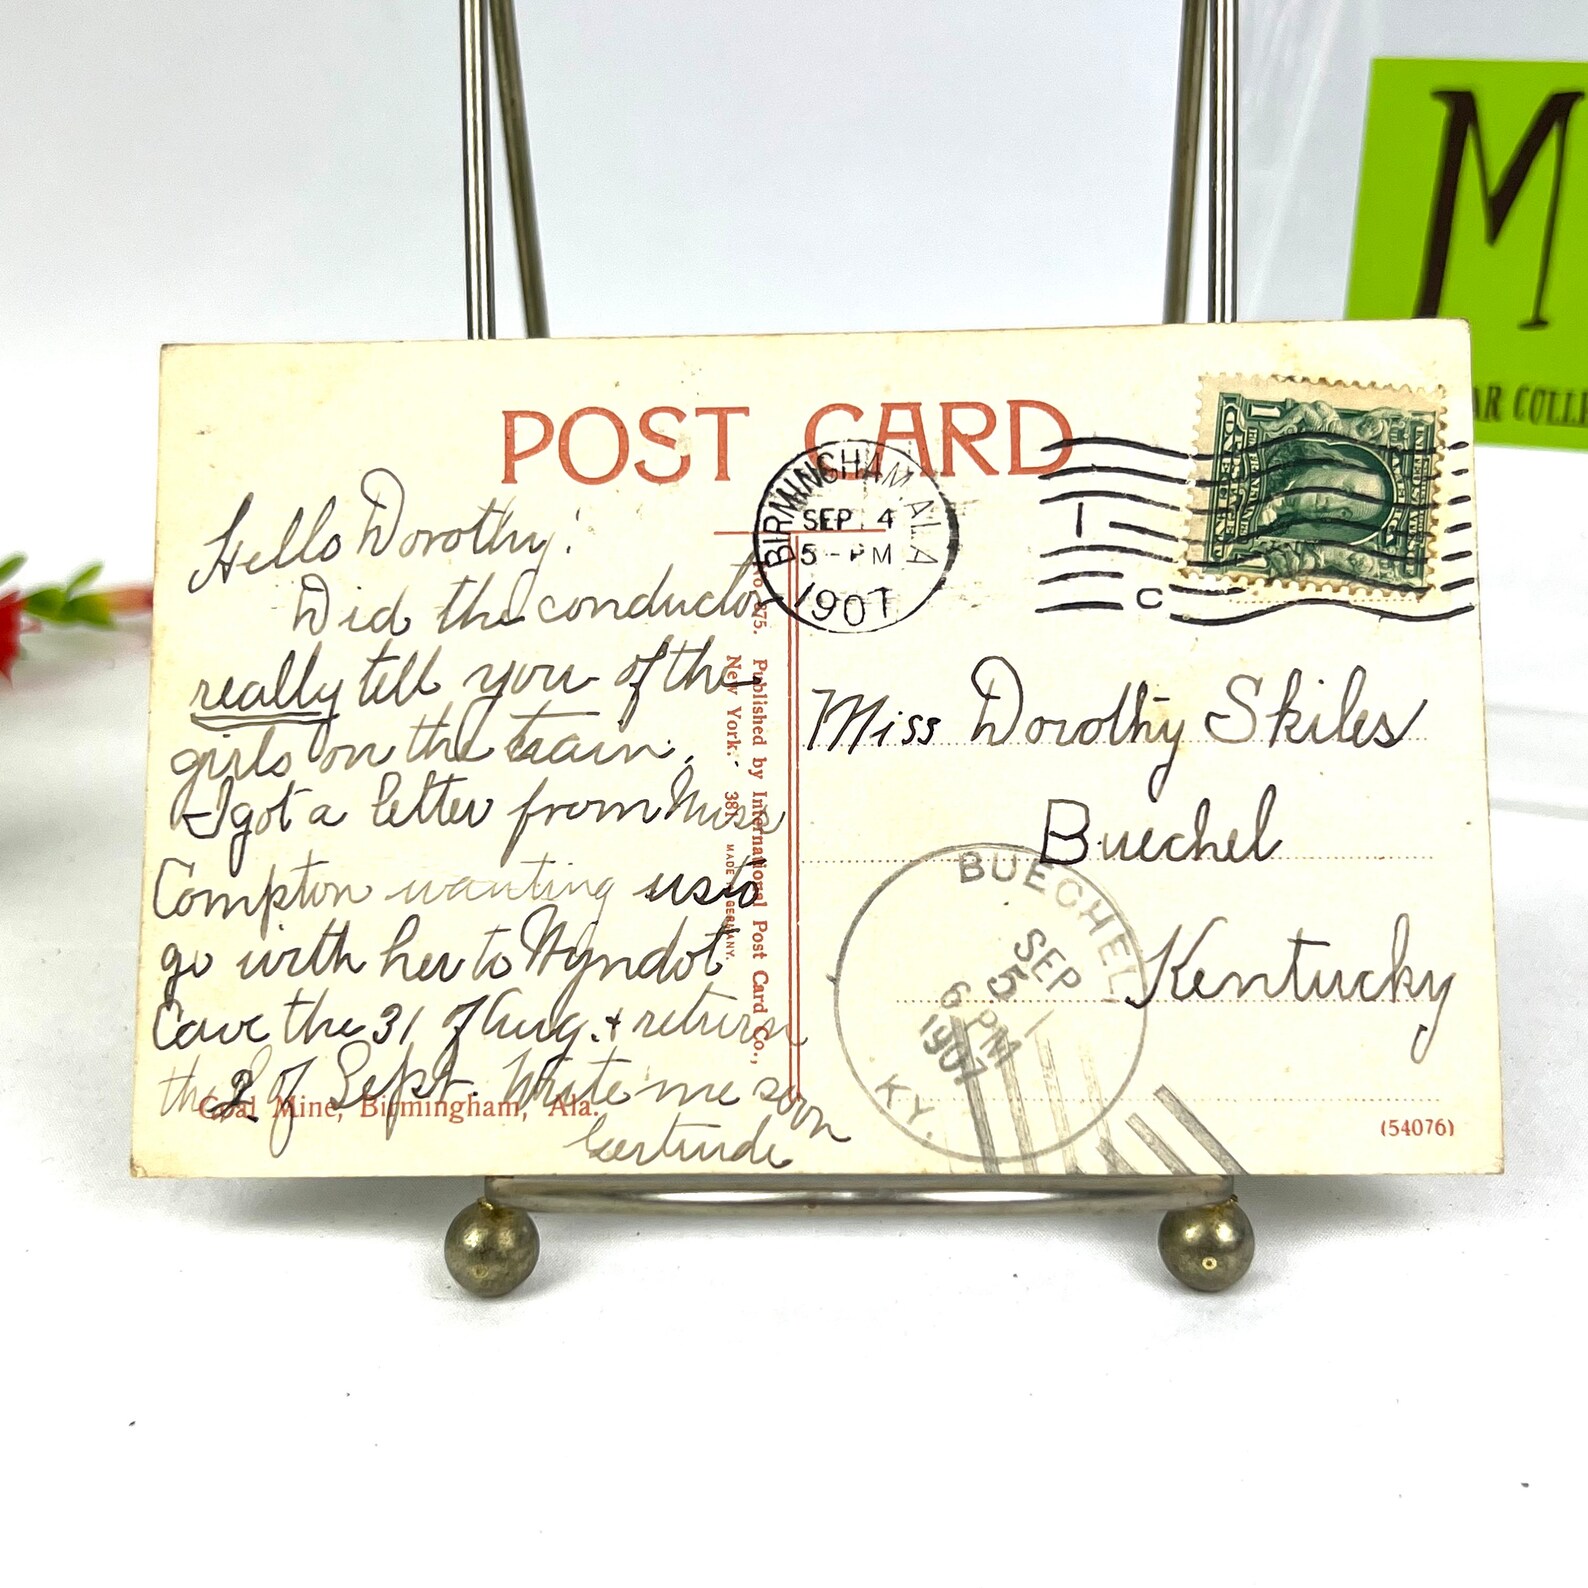 M
AR COLLE
POST CARD
BIRMINGHAM ALA
SEP 4
5 - PM
1907
1 C
Hello Dorothy!
Did the conductor
really tell you of the
girls on the train.
I got a letter from Miss
Compton wanting us to
go with her to Wyndot
Cave the 31 of Aug. + return
the 2 of Sept. Write me soon
Gertrude
Coal Mine, Birmingham, Ala.
Published by International Post Card Co.,
New York.
MADE GERMANY.
Miss Dorothy Skiles
Buechel
Kentucky
BUECHEL
SEP
5
6 PM
1907
KY.
(54076)